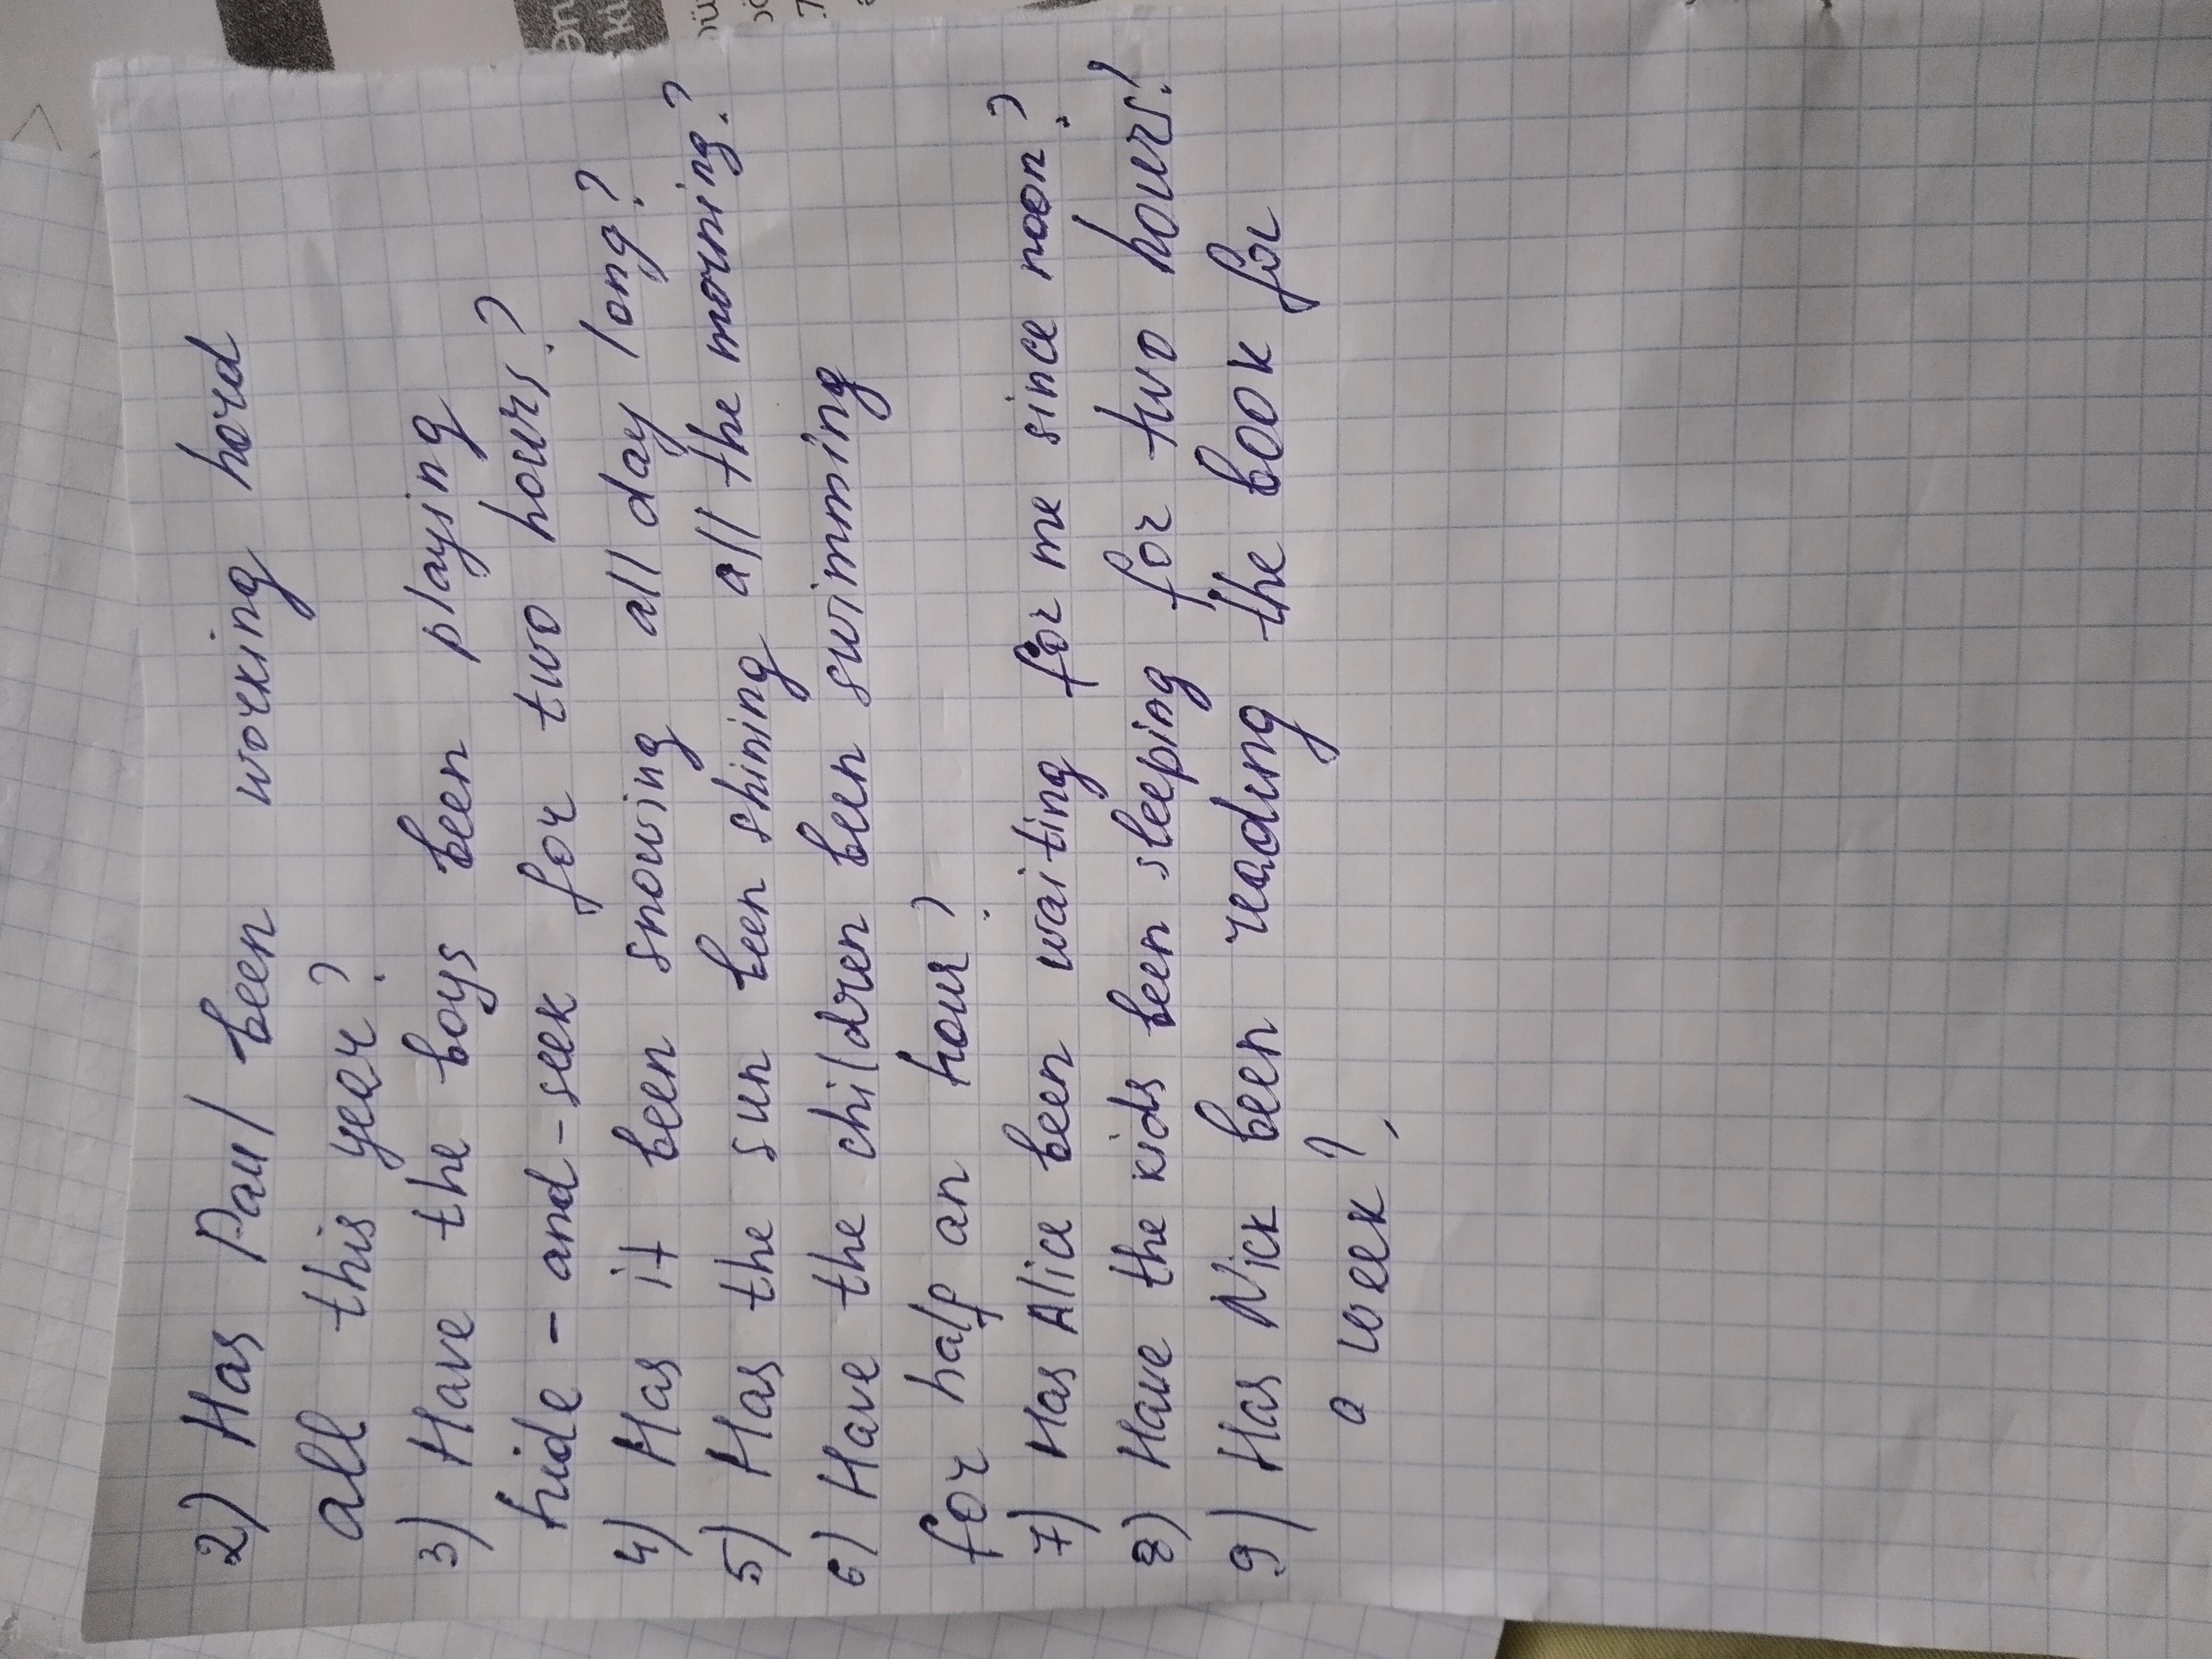 2) Has Paul been working hard
all this year?
3) Have the boys been playing
hide-and-seek for two hours?
4) Has it been snowing all day long?
5) Has the sun been shining all the morning?
6) Have the children been swimming
for half an hour?
7) Has Alice been waiting for me since noon?
8) Have the kids been sleeping for two hours?
9) Has Nick been reading the book for
a week?